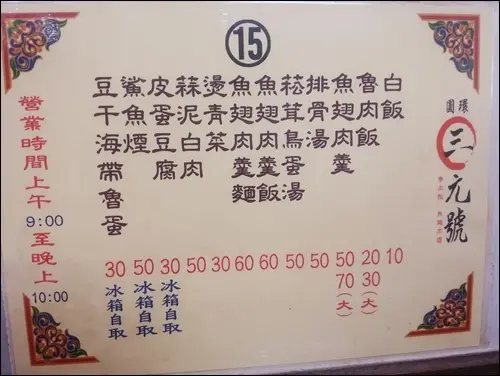 ⑮
圓環
三元號
白飯 10
魯肉飯 20 30(大)
魚翅肉羹 50 70(大)
排骨湯 50
菘茸鳥蛋湯 50
魚翅肉羹飯 60
魚翅肉羹麵 60
燙青菜 30
蒜泥白肉 50
皮蛋豆腐 30 冰箱自取
鯊魚煙 50 冰箱自取
豆干海帶魯蛋 30 冰箱自取
營業時間上午9:00至晚上10:00